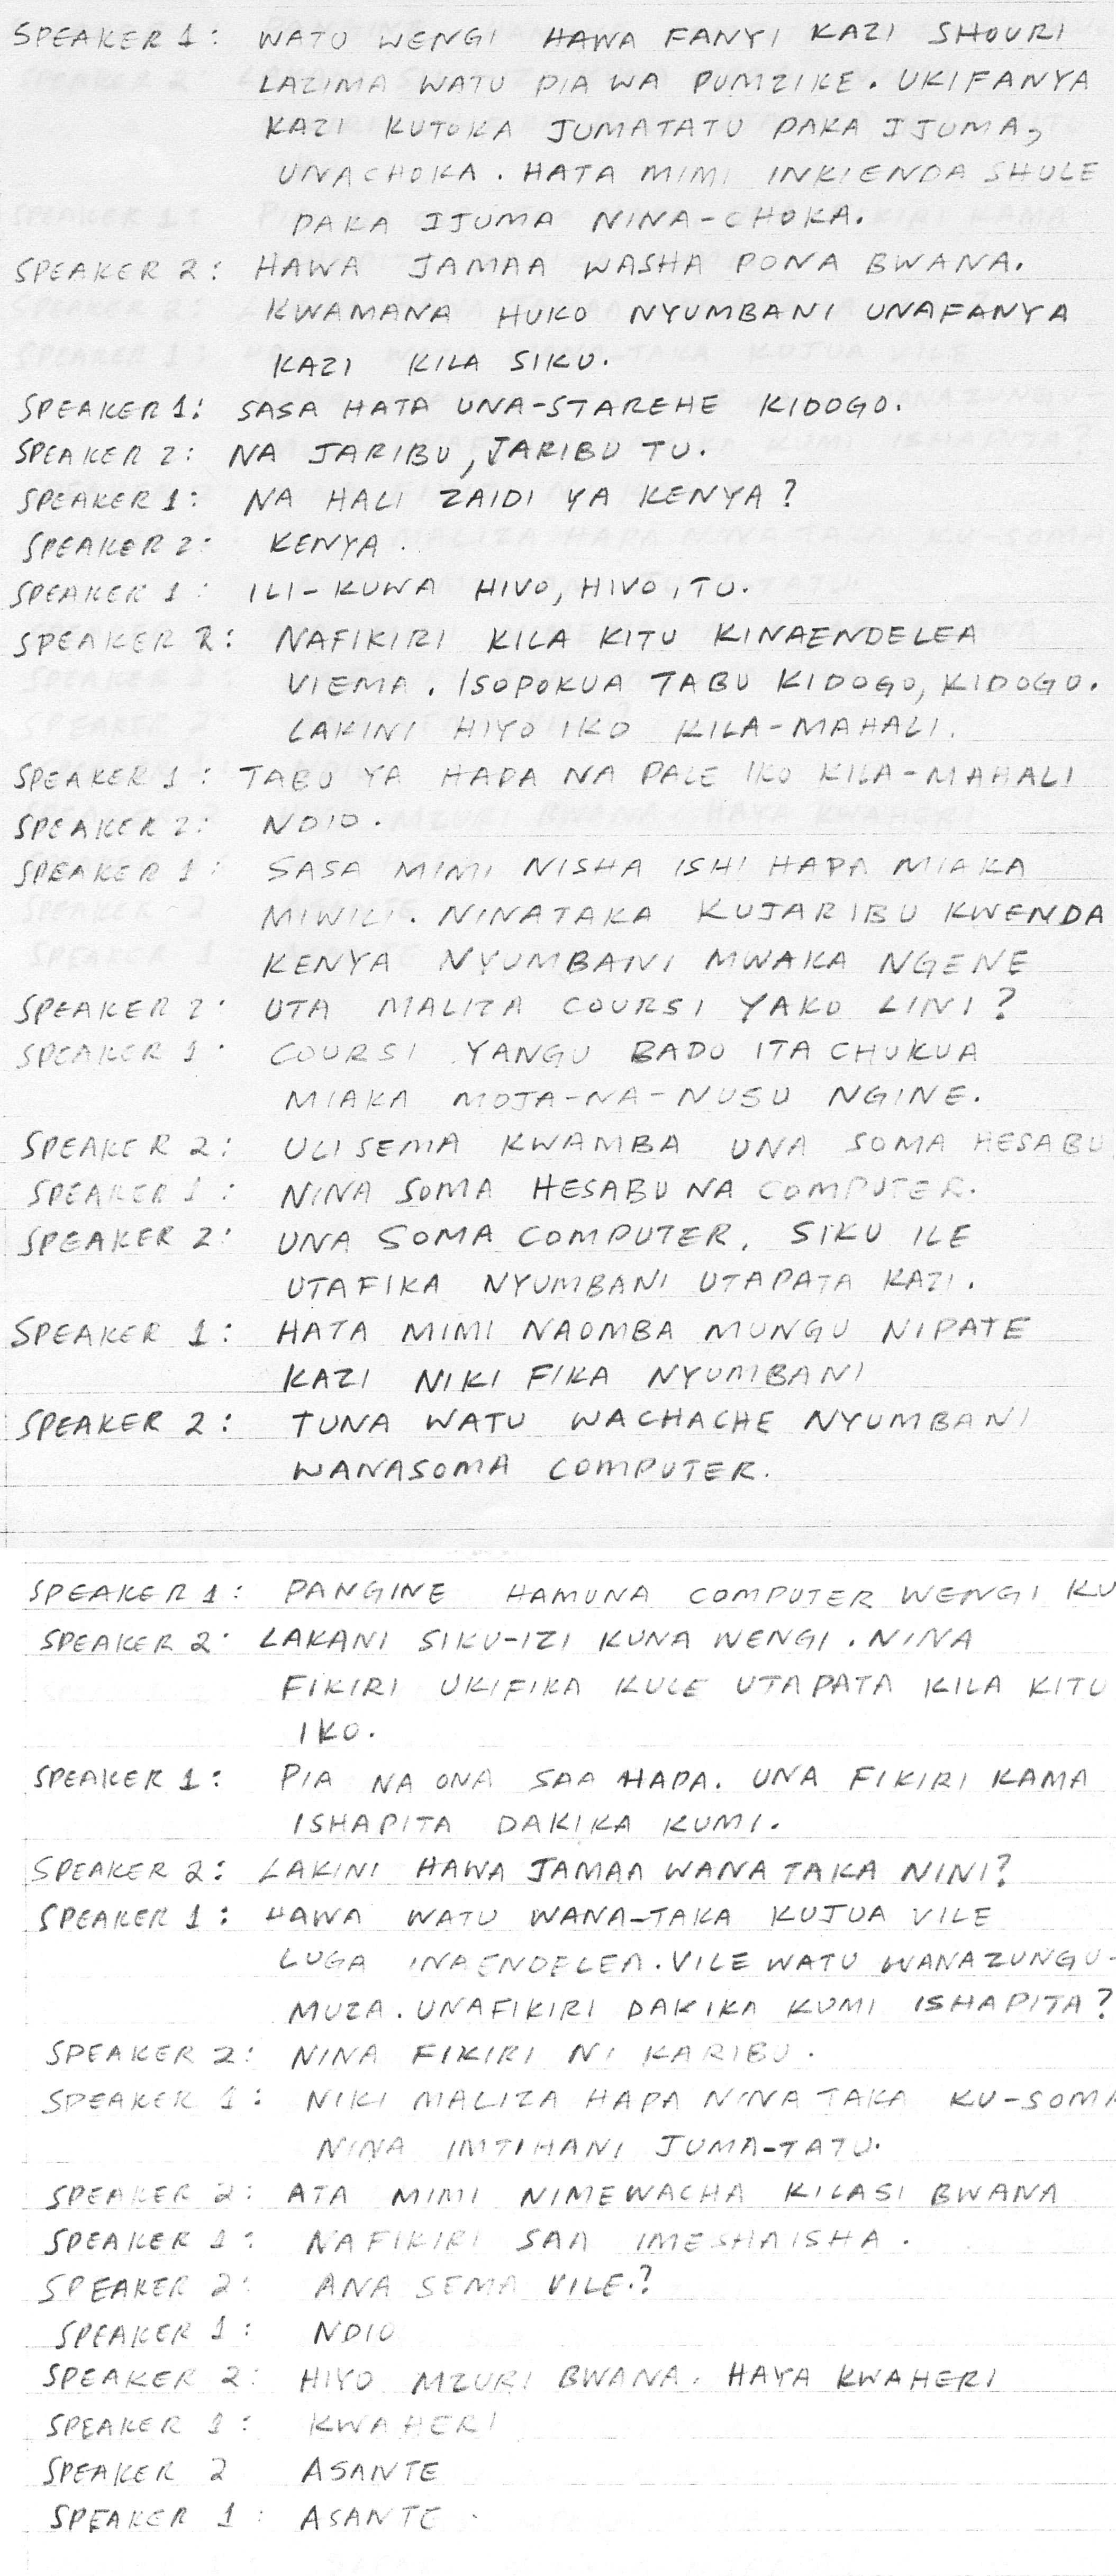 SPEAKER 1: WATU WENGI HAWA FANYI KAZI SHOURI
LAZIMA WATU PIA WA PUMZIKE. UKIFANYA
KAZI KUTOKA JUMATATU PAKA IJUMA,
UNACHOKA. HATA MIMI INKIENDA SHULE
PAKA IJUMA NINA-CHOKA.
SPEAKER 2: HAWA JAMAA WASHA PONA BWANA.
KWAMANA HUKO NYUMBANI UNAFANYA
KAZI KILA SIKU.
SPEAKER 1: SASA HATA UNA-STAREHE KIDOGO.
SPEAKER 2: NA JARIBU, JARIBU TU.
SPEAKER 1: NA HALI ZAIDI YA KENYA?
SPEAKER 2: KENYA.
SPEAKER 1: ILI-KUWA HIVO, HIVO, TU.
SPEAKER 2: NAFIKIRI KILA KITU KINAENDELEA
VIEMA. ISOPOKUA TABU KIDOGO, KIDOGO.
LAKINI HIYO IKO KILA-MAHALI.
SPEAKER 1: TABU YA HAPA NA PALE IKO KILA-MAHALI
SPEAKER 2: NDIO.
SPEAKER 1: SASA MIMI NISHA ISHI HAPA MIAKA
MIWILI. NINATAKA KUJARIBU KWENDA
KENYA NYUMBANI MWAKA NGENE
SPEAKER 2: UTA MALIZA COURSI YAKO LINI?
SPEAKER 1: COURSI YANGU BADO ITA CHUKUA
MIAKA MOJA-NA-NUSU NGINE.
SPEAKER 2: ULISEMA KWAMBA UNA SOMA HESABU
SPEAKER 1: NINA SOMA HESABU NA COMPUTER.
SPEAKER 2: UNA SOMA COMPUTER. SIKU ILE
UTAFIKA NYUMBANI UTAPATA KAZI.
SPEAKER 1: HATA MIMI NAOMBA MUNGU NIPATE
KAZI NIKI FIKA NYUMBANI
SPEAKER 2: TUNA WATU WACHACHE NYUMBANI
WANASOMA COMPUTER.
SPEAKER 1: PANGINE HAMUNA COMPUTER WENGI KU
SPEAKER 2: LAKANI SIKU-IZI KUNA WENGI. NINA
FIKIRI UKIFIKA KULE UTAPATA KILA KITU
IKO.
SPEAKER 1: PIA NA ONA SAA HAPA. UNA FIKIRI KAMA
ISHAPITA DAKIKA KUMI.
SPEAKER 2: LAKINI HAWA JAMAA WANA TAKA NINI?
SPEAKER 1: HAWA WATU WANA-TAKA KUJUA VILE
LUGA INAENDELEA. VILE WATU WANAZUNGU-
MUZA. UNAFIKIRI DAKIKA KUMI ISHAPITA?
SPEAKER 2: NINA FIKIRI NI KARIBU.
SPEAKER 1: NIKI MALIZA HAPA NINA TAKA KU-SOMA
NINA IMTIHANI JUMA-TATU.
SPEAKER 2: ATA MIMI NIMEWACHA KILASI BWANA
SPEAKER 1: NAFIKIRI SAA IMESHAISHA.
SPEAKER 2: ANA SEMA VILE.?
SPEAKER 1: NDIO
SPEAKER 2: HIYO MZURI BWANA. HAYA KWAHERI
SPEAKER 1: KWAHERI
SPEAKER 2 ASANTE
SPEAKER 1: ASANTE.